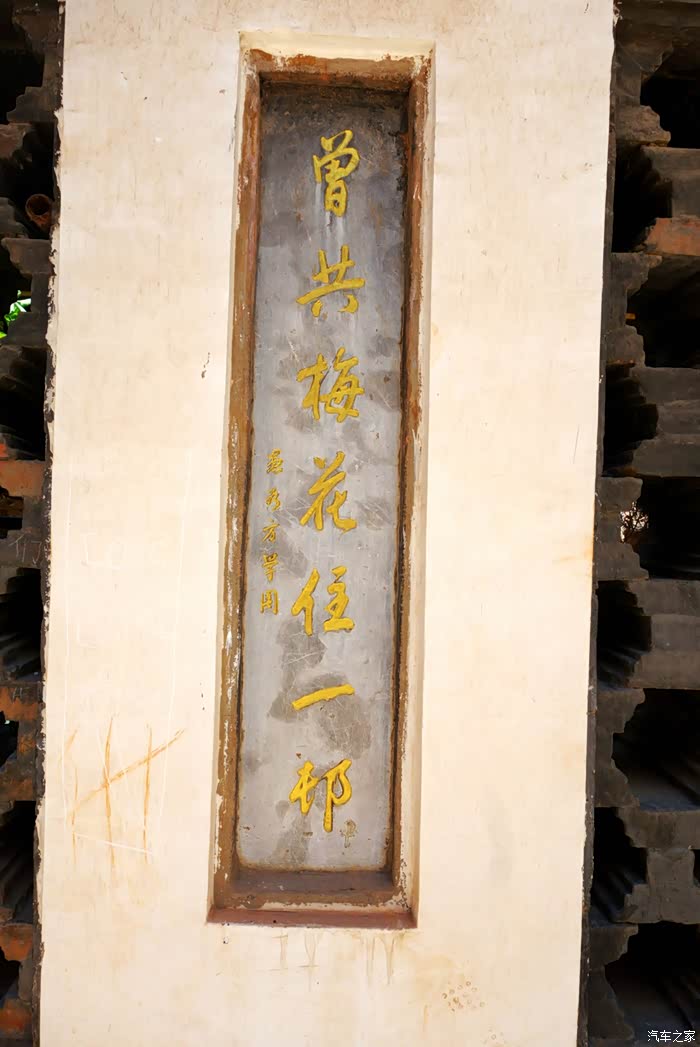 曾共梅花住一邨
方学周
汽车之家